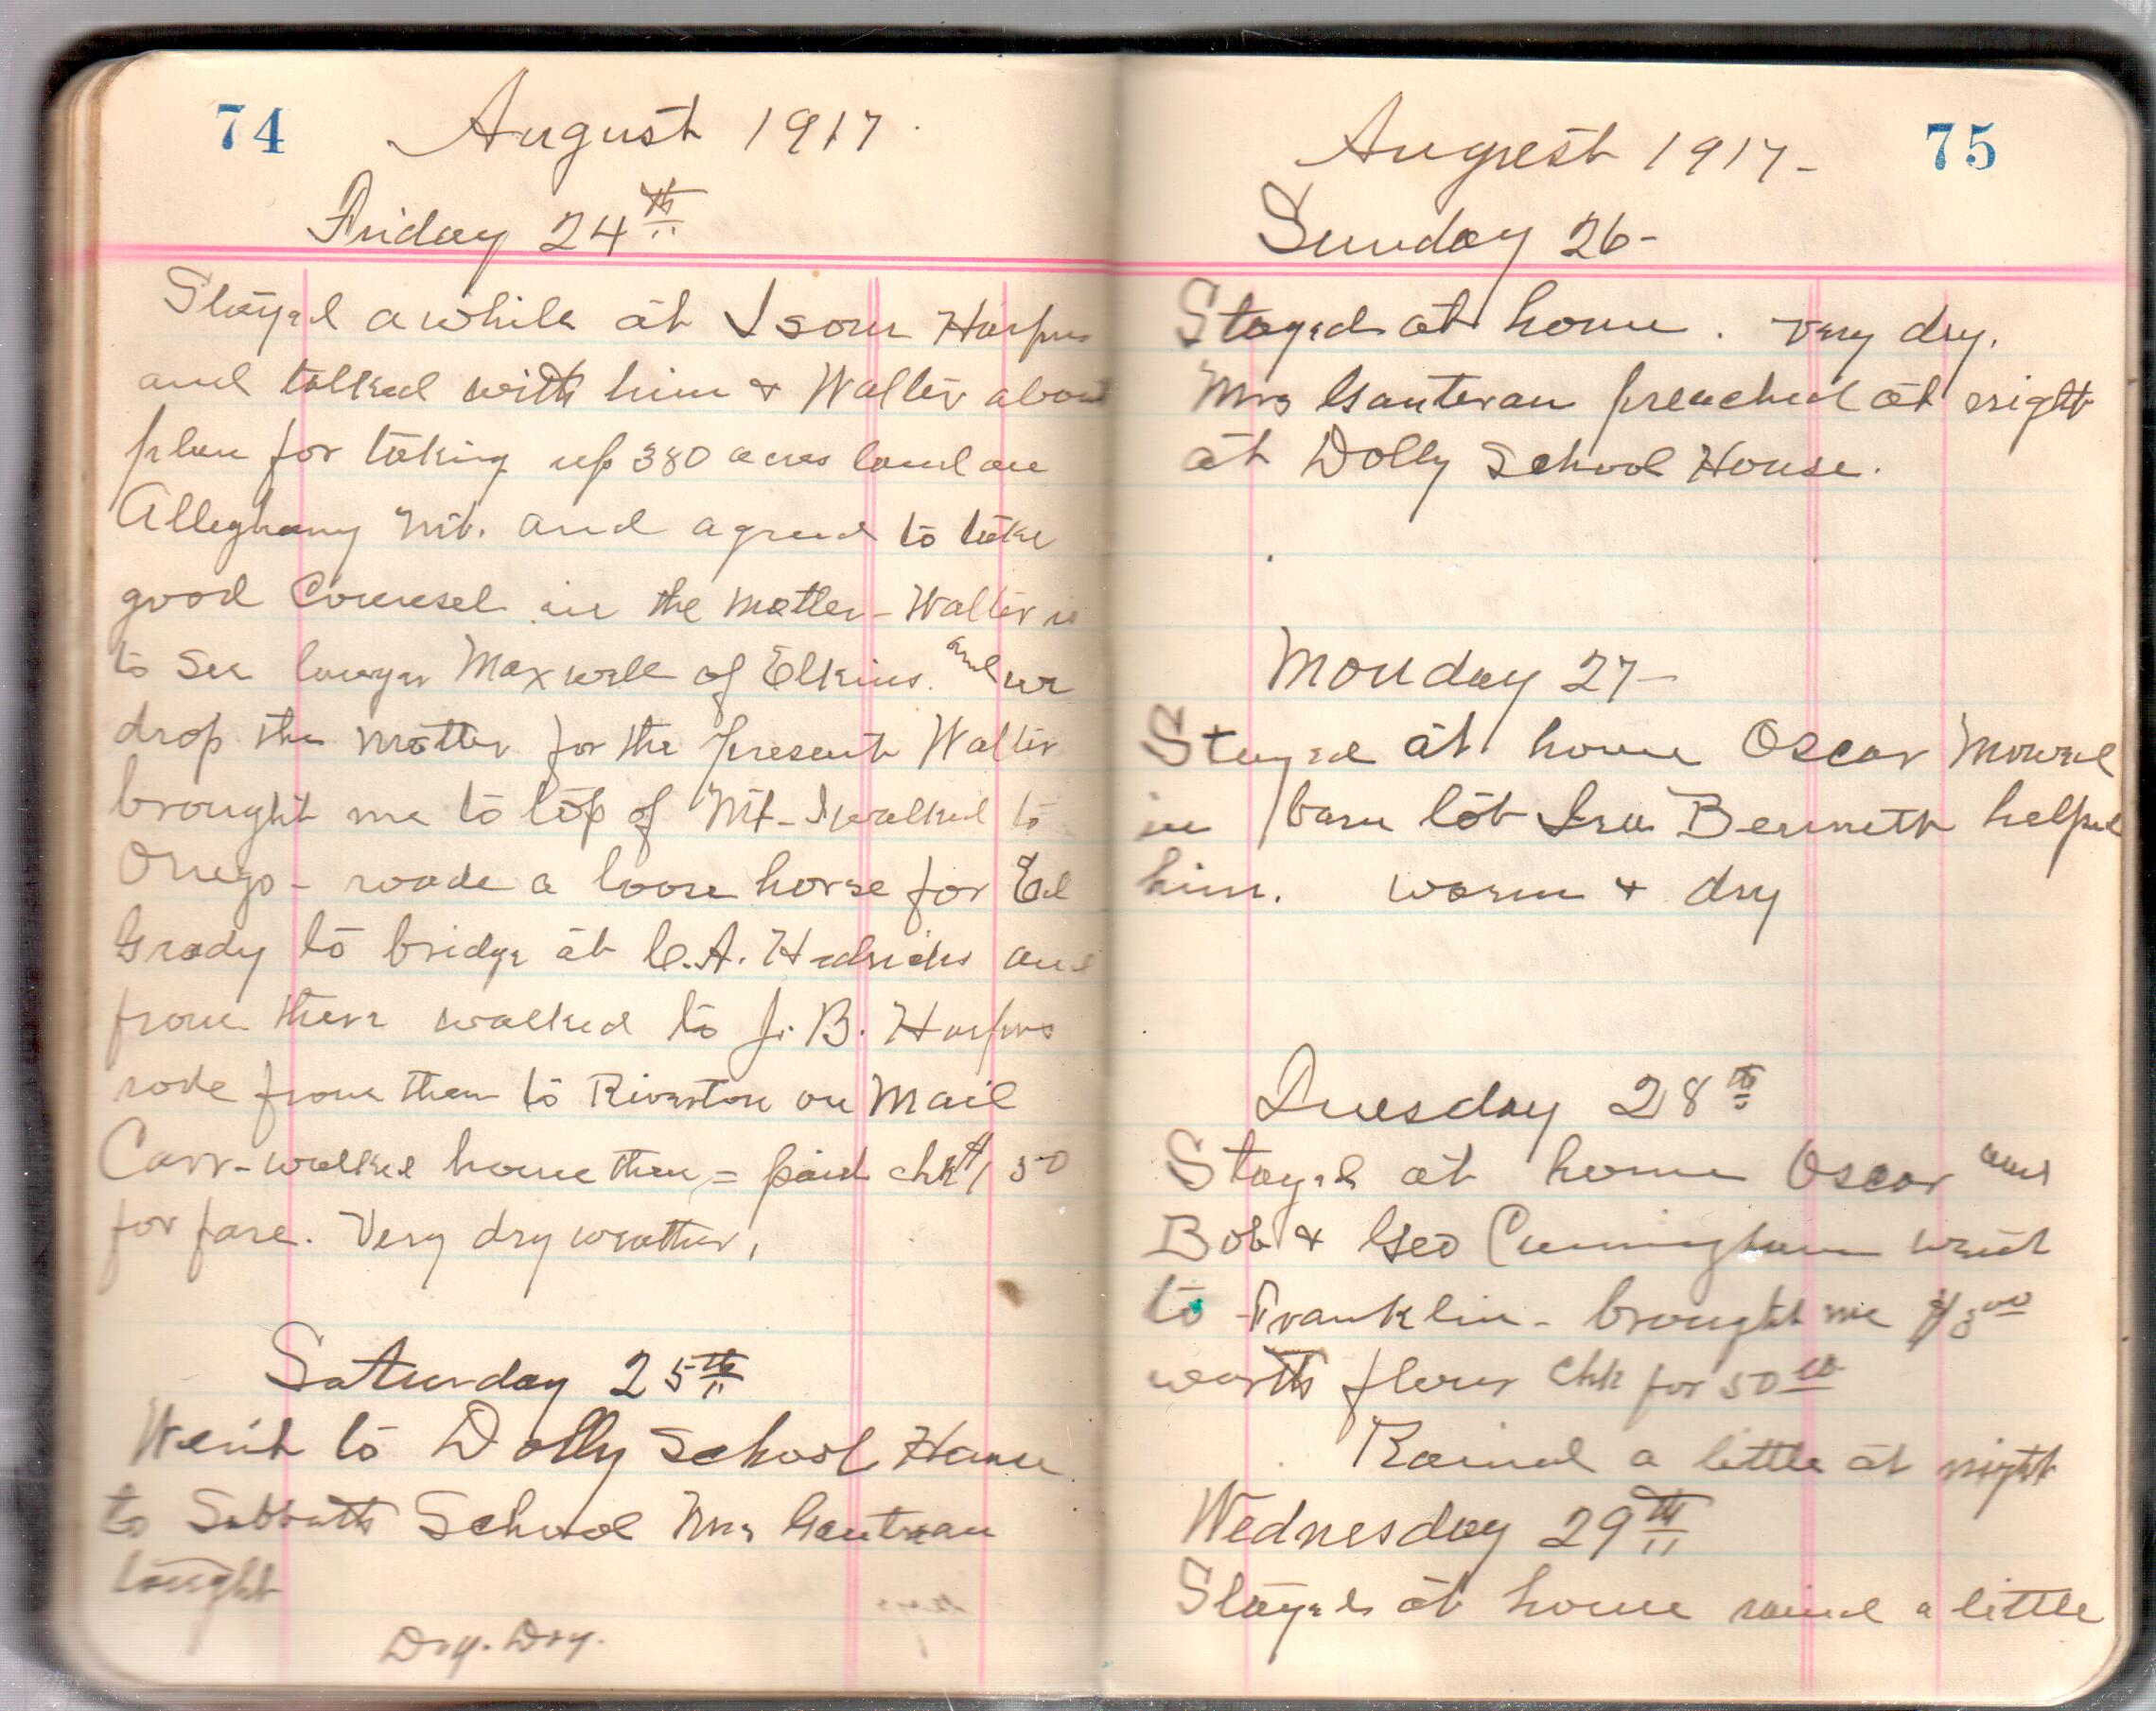 74
August 1917
Friday 24th
Stayed awhile at Isom Harpers
and talked with him + Walter about
plan for taking up 380 acres land on
Alleghany Mt. and agreed to take
good Counsel in the matter - Walter is
to see lawyer Maxwell of Elkins. and we
drop the matter for the present Walter
brought me to top of Mt - I walked to
Onego - roade a loose horse for Ed
Grady to bridge at C.A. Hedricks and
from there walked to J. B. Harpers
rode from then to Riverton on Mail
Carr - walked home then = paid chk 50
for fare. Very dry weather,
Saturday 25th
Went to Dolly School House
to Sabbath School Mrs Gauterau
taught
Dry. Dry.
75
August 1917 -
Sunday 26 -
Stayed at home. very dry.
Mrs Gauterau preached at night
at Dolly School House.
Monday 27 -
Stayed at home Oscar Mowed
in barn lot Ira Bennett helped
him. warm + dry
Tuesday 28th
Stayed at home Oscar and
Bob + Geo Cunningham went
to Franklin - brought me $3 00
worth flour chk for 50 00
Rained a little at night
Wednesday 29th
Stayed at home rained a little